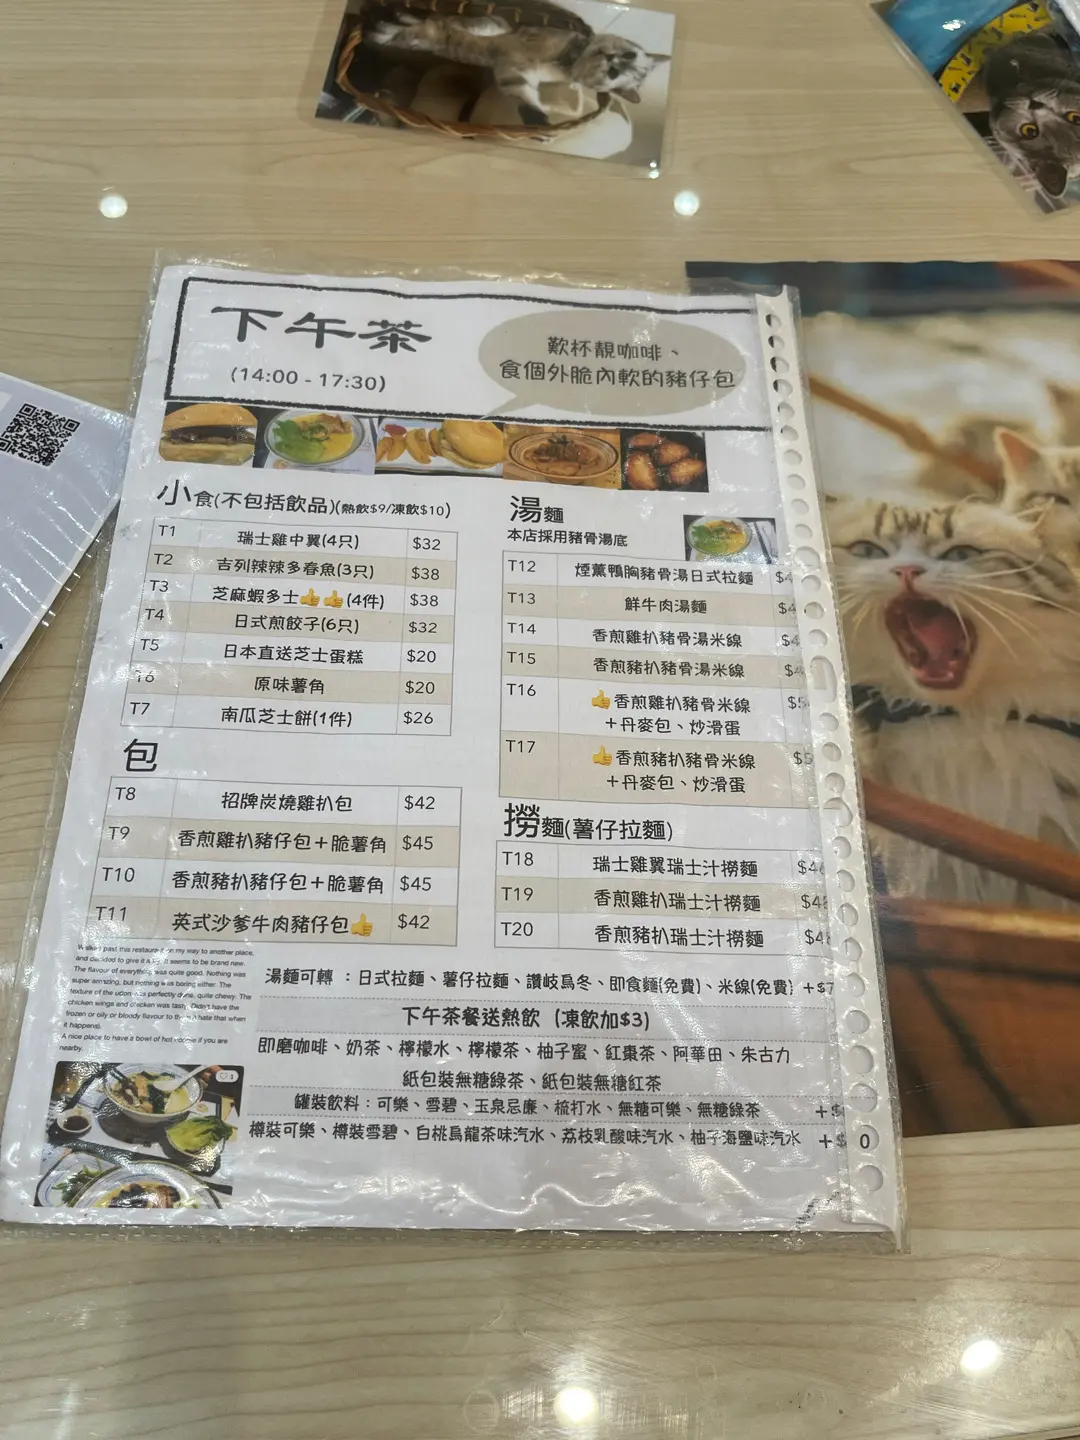 下午茶
(14:00 - 17:30)
歎杯靚咖啡、
食個外脆內軟的豬仔包
小食(不包括飲品)(熱飲$9/凍飲$10)
T1 瑞士雞中翼(4只) $32
T2 吉列辣辣多春魚(3只) $38
T3 芝麻蝦多士👍👍(4件) $38
T4 日式煎餃子(6只) $32
T5 日本直送芝士蛋糕 $20
T6 原味薯角 $20
T7 南瓜芝士餅(1件) $26
包
T8 招牌炭燒雞扒包 $42
T9 香煎雞扒豬仔包＋脆薯角 $45
T10 香煎豬扒豬仔包＋脆薯角 $45
T11 英式沙爹牛肉豬仔包👍 $42
湯麵
本店採用豬骨湯底
T12 煙薰鴨胸豬骨湯日式拉麵
T13 鮮牛肉湯麵
T14 香煎雞扒豬骨湯米線
T15 香煎豬扒豬骨湯米線
T16 👍香煎雞扒豬骨米線
＋丹麥包、炒滑蛋
T17 👍香煎豬扒豬骨米線
＋丹麥包、炒滑蛋
撈麵(薯仔拉麵)
T18 瑞士雞翼瑞士汁撈麵
T19 香煎雞扒瑞士汁撈麵
T20 香煎豬扒瑞士汁撈麵
湯麵可轉 ：日式拉麵、薯仔拉麵、讚岐烏冬、即食麵(免費)、米線(免費) +$7
下午茶餐送熱飲 (凍飲加$3)
即磨咖啡、奶茶、檸檬水、檸檬茶、柚子蜜、紅棗茶、阿華田、朱古力
紙包裝無糖綠茶、紙包裝無糖紅茶
罐裝飲料：可樂、雪碧、玉泉忌廉、梳打水、無糖可樂、無糖綠茶 +$
樽裝可樂、樽裝雪碧、白桃烏龍茶味汽水、荔枝乳酸味汽水、柚子海鹽味汽水 +$ 0
past this restaurant on my way to another place,
and decided to give it a try. It seems to be brand new.
The flavour of everything was quite good. Nothing was
super amazing, but nothing was boring either. The
texture of the udon was perfectly done, quite chewy. The
chicken wings and chicken was tasty. Didn't have the
frozen or oily or bloody flavour to them (I hate that when
it happens).
A nice place to have a bowl of hot noodle if you are
nearby.